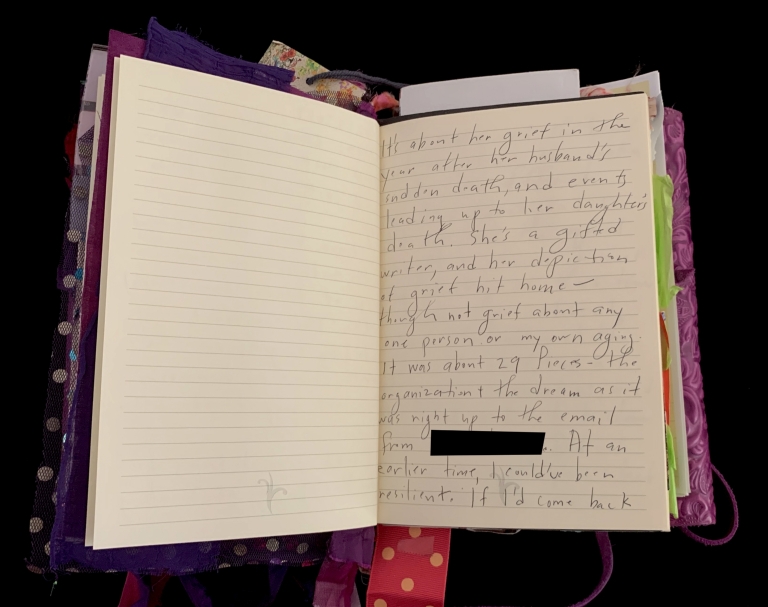 It's about her grief in the
year after her husband's
sudden death, and events
leading up to her daughter's
death. She's a gifted
writer, and her depiction
of grief hit home –
though not grief about any
one person or my own aging.
It was about 29 Pieces – the
organization + the dream as it
was right up to the email
from . At an
earlier time, I could've been
resilient. If I'd come back